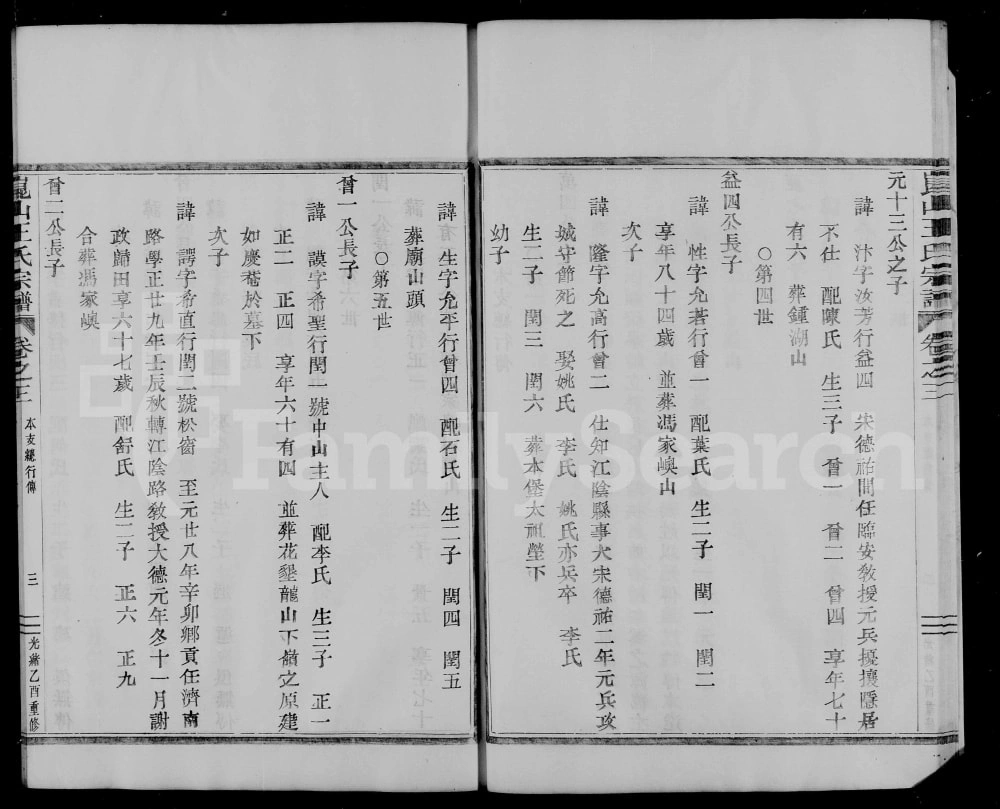 元十三公之子
諱 汴字汝芳行益四 宋德祐間任臨安教授元兵擾攘隱居
不仕 配陳氏 生三子 曾一 曾二 曾四 享年七十
有六 葬鍾湖山
○第四世
益四公長子
諱 性字允若行曾一 配葉氏 生二子 閏一 閏二
享年八十四歲 並葬馮家嶴山
次子
諱 隆字允高行曾二 仕知江陰縣事大宋德祐二年元兵攻
城守節死之 娶姚氏 李氏 姚氏亦兵卒 李氏
生二子 閏三 閏六 葬本堡太祖塋下
幼子
諱 有 生字允平行曾四 配石氏 生二子 閏四 閏五
葬廟山頭
○第五世
曾一公長子
諱 謨字希聖行閏一號中山主人 配李氏 生三子 正一
正二 正四 享年六十有四 並葬花墾龍山下嶺之原建
如慶菴於墓下
次子
諱 諤字希直行閏二號松窗 至元廿八年辛卯鄉貢任濟南
路學正廿九年壬辰秋轉江陰路教授大德元年冬十一月謝
政歸田享六十七歲 配舒氏 生二子 正六 正九
合葬馮家嶴
曾二公長子
山王氏宗譜 卷之三 本支總行傳 三 光緒乙酉重修
FamilySearch